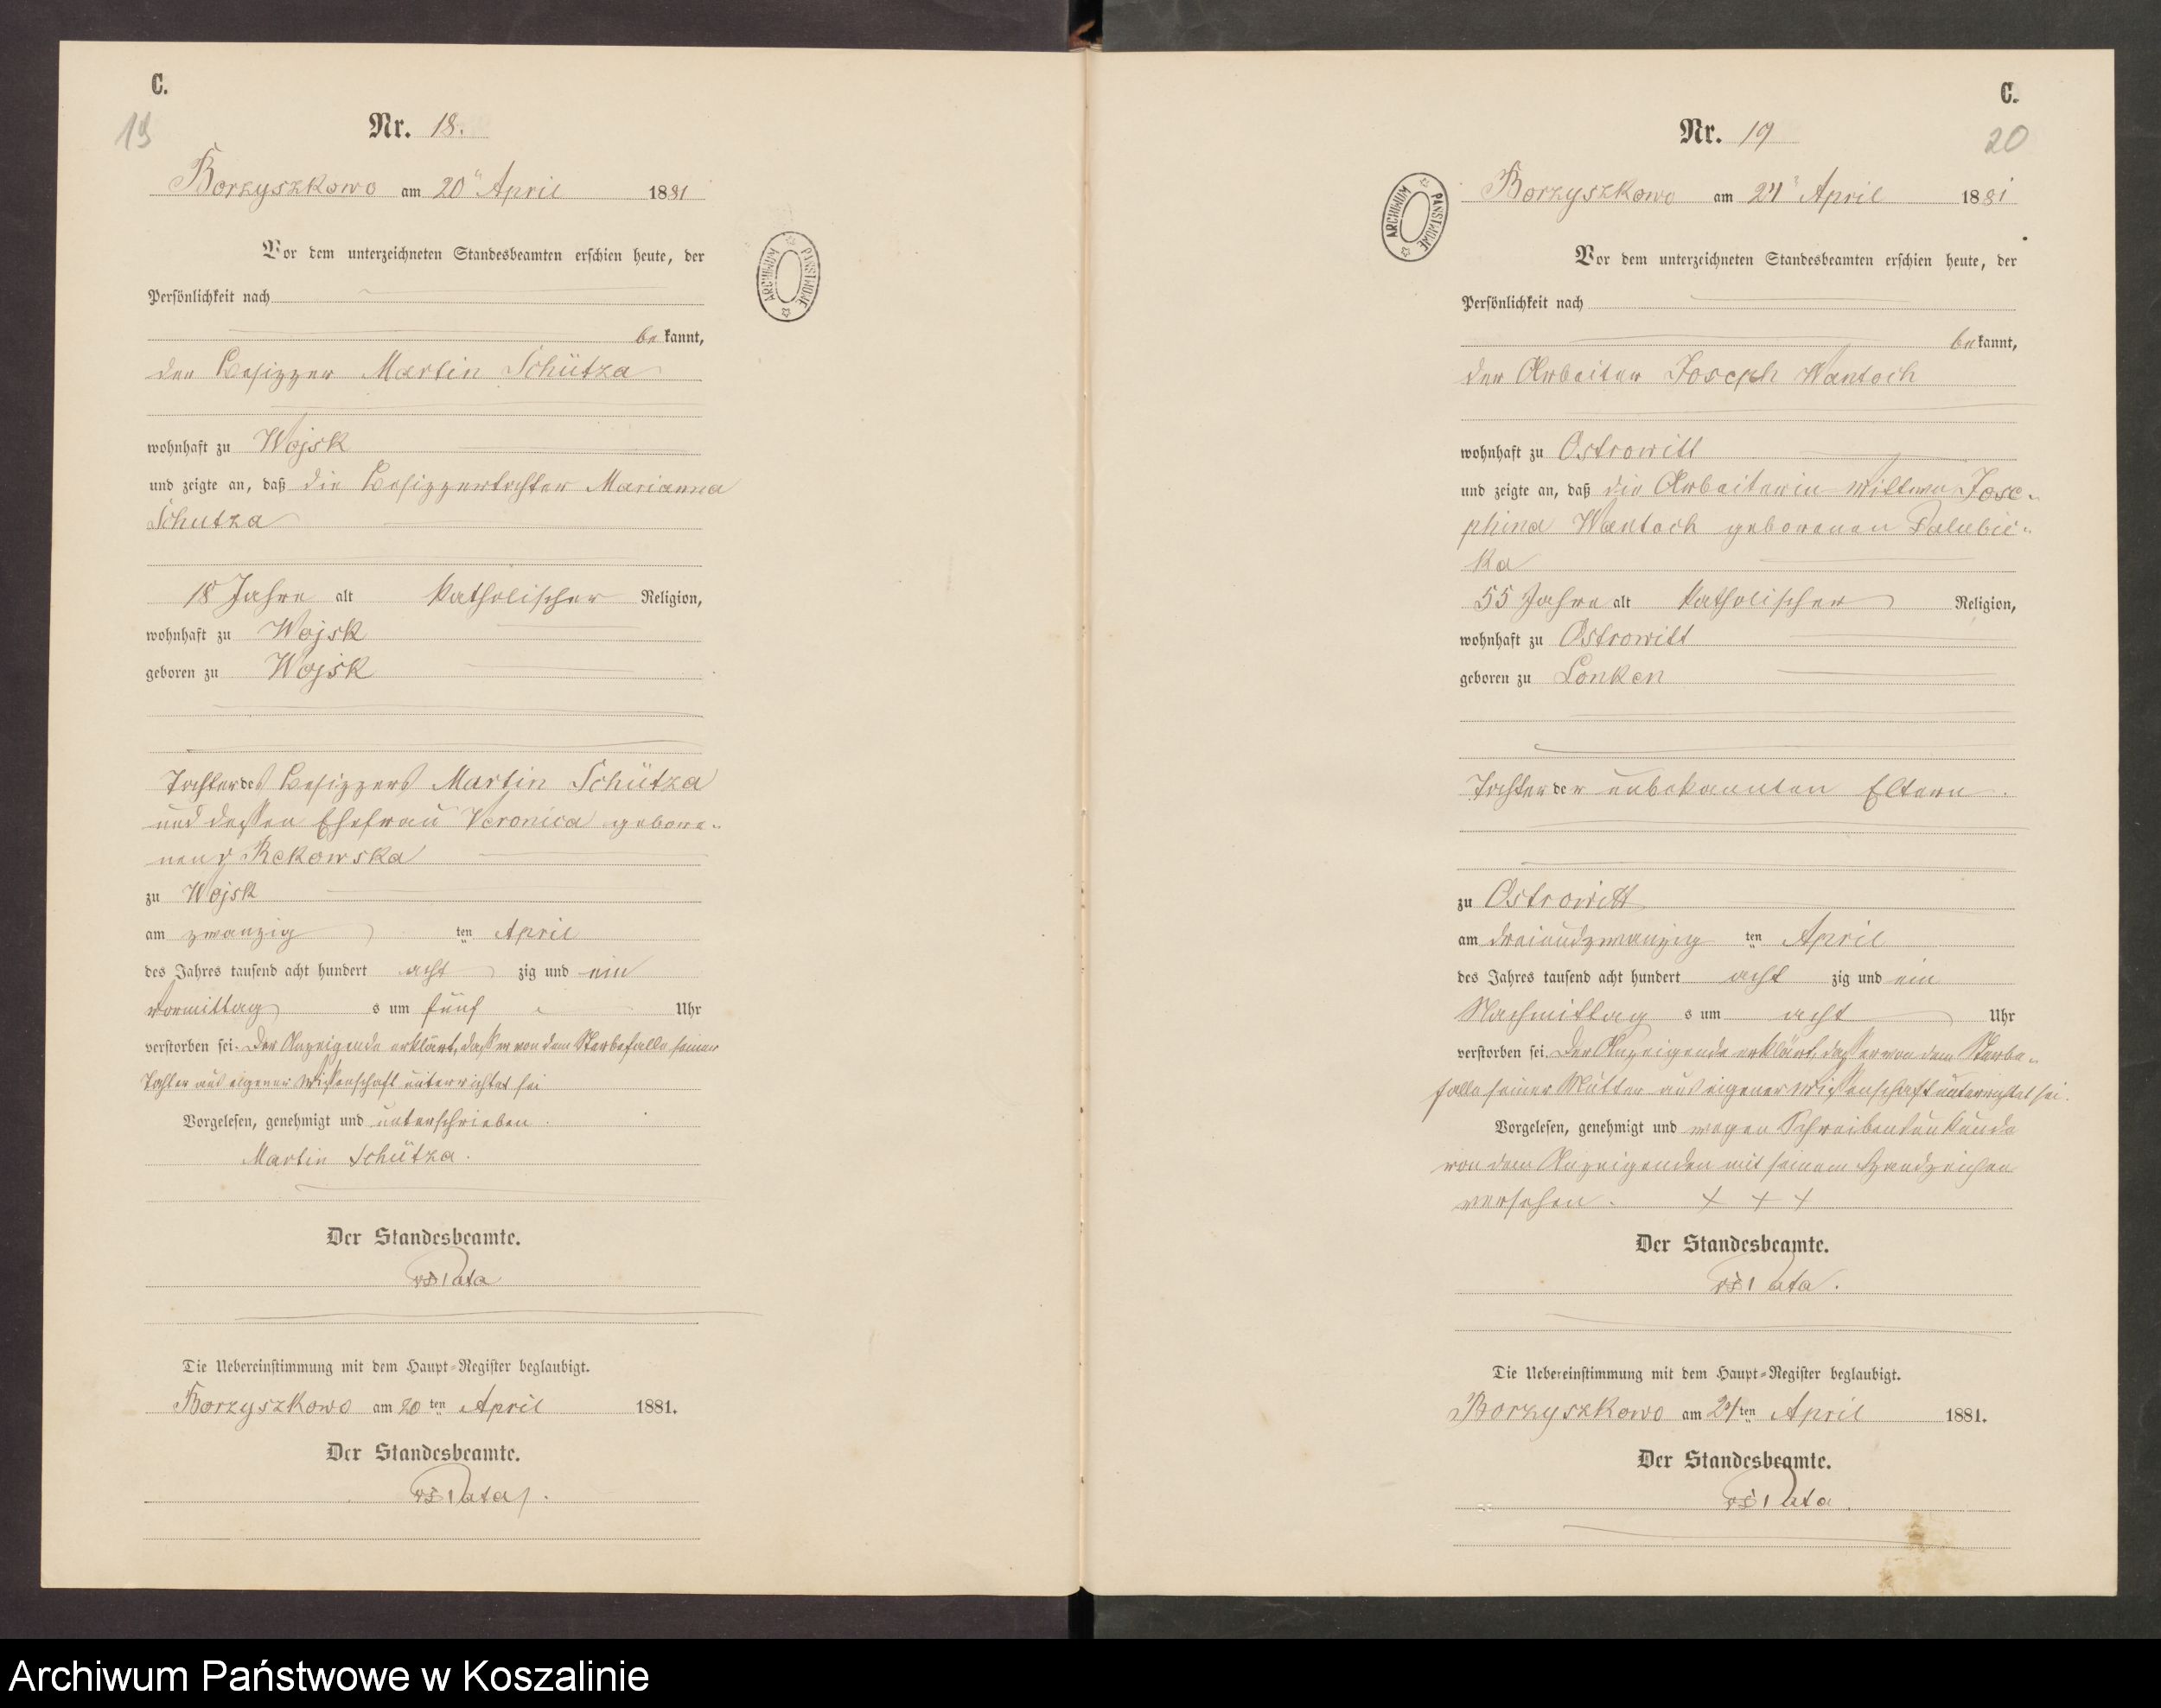 C.
19
Nr. 18.
Borzyszkowo am 20ᵗ April 1881
Vor dem unterzeichneten Standesbeamten erschien heute, der
Persönlichkeit nach
bekannt,
der Besitzer Martin Schütza
wohnhaft zu Wojsk
und zeigte an, daß die Besitzertochter Marianna
Schutza
18 Jahre alt katholischer Religion,
wohnhaft zu Wojsk
geboren zu Wojsk
Tochter des Besitzers Martin Schütza
und dessen Ehefrau Veronica gebore-
nen Rekowska
zu Wojsk
am zwanzig ten April
des Jahres tausend acht hundert acht zig und ein
vormittag s um fünf Uhr
verstorben sei. Der Anzeigende erklärt, dass er von dem Sterbefalle seiner
Tochter aus eigener Wissenschaft unterrichtet sei
Vorgelesen, genehmigt und unterschrieben.
Martin Schütza.
Der Standesbeamte.
Die Uebereinstimmung mit dem Haupt-Register beglaubigt.
Borzyszkowo am 20 ten April 1881.
Der Standesbeamte.
C.
20
Nr. 19
ARCHIWUM PAŃSTWOWE
Borzyszkowo am 24ᵗ April 1881
Vor dem unterzeichneten Standesbeamten erschien heute, der
Persönlichkeit nach
bekannt,
der Arbeiter Joseph Wantoch
wohnhaft zu Ostrowitt
und zeigte an, daß die Arbeiterin Wittwe Jose-
phina Wantoch geborenen Palubic-
ka
55 Jahre alt katholischer Religion,
wohnhaft zu Ostrowitt
geboren zu Lonken
Tochter der unbekannten Eltern.
zu Ostrowitt
am dreiundzwanzig ten April
des Jahres tausend acht hundert acht zig und ein
Nachmittag s um acht Uhr
verstorben sei. Der Anzeigende erklärt, dass er von dem Sterbe-
falle seiner Mutter aus eigener Wissenschaft unterrichtet sei.
Vorgelesen, genehmigt und wegen Schreibensunkunde
von dem Anzeigenden mit seinem Handzeichen
versehen. + + +
Der Standesbeamte.
Die Uebereinstimmung mit dem Haupt-Register beglaubigt.
Borzyszkowo am 24 ten April 1881.
Der Standesbeamte.
ARCHIWUM PAŃSTWOWE
Archiwum Państwowe w Koszalinie